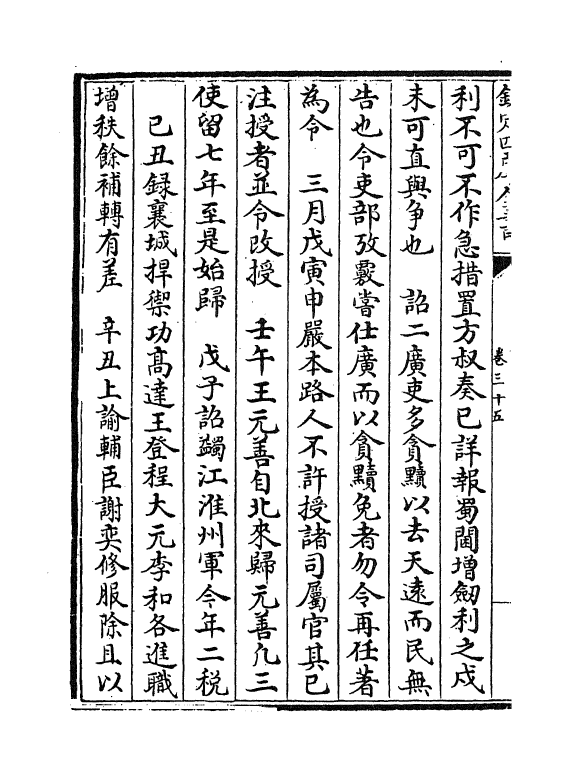 欽定四庫全書
卷三十五
利不可不作急措置方叔奏已詳報蜀閫增劒利之戍
未可直與争也　詔二廣吏多貪黷以去天遠而民無
告也令吏部攷覈嘗仕廣而以貪黷免者勿令再任著
為令　三月戊寅申嚴本路人不許授諸司屬官其已
注授者並令改授　壬午王元善自北來歸元善凡三
使留七年至是始歸　戊子詔蠲江淮州軍今年二稅
己丑録襄城捍禦功髙達王登程大元李和各進職
增秩餘補轉有差　辛丑上諭輔臣謝奕修服除且以